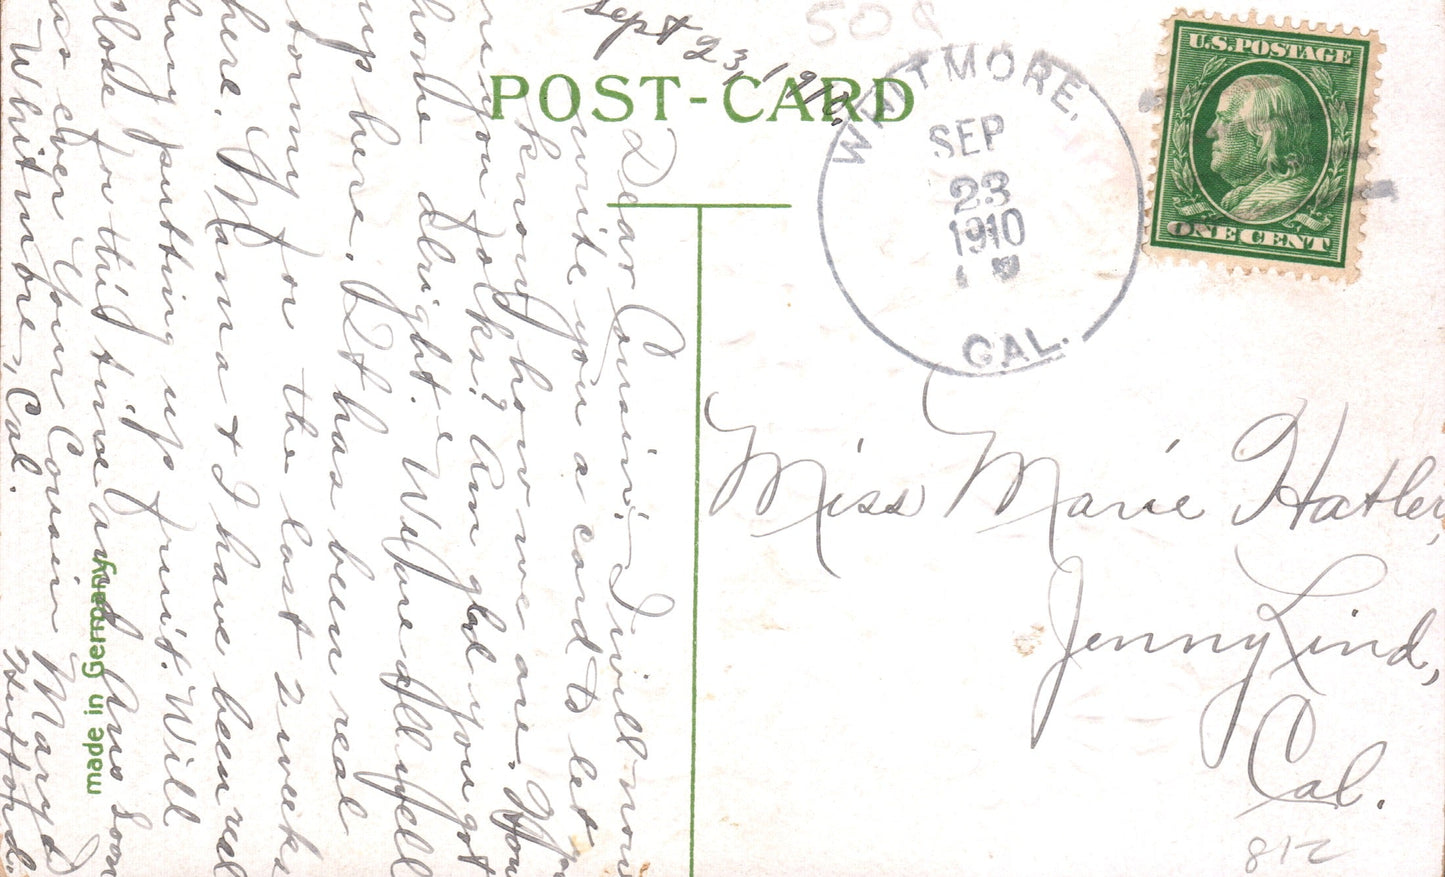 Sept 23, 1910.
508
POST-CARD
WHITMORE,
SEP
23
1910
CAL.
U.S. POSTAGE
ONE CENT
Dear Cousin:- I will now
write you a card to let
know how we are. How
are you folks? Am glad you got
home alright. We are all well
up here. It has been real
stormy for the last 2 weeks
here. Mama & I have been real
busy putting up fruit. Will
close for this time and Ans soon
as ever Your Cousin Mary
Whitmore, Cal.
Miss Marie Hatler,
Jenny Lind,
Cal.
812
made in Germany